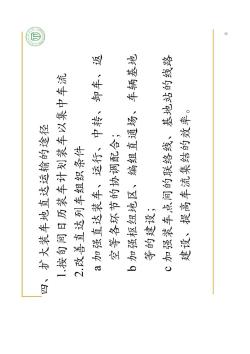 四、扩大装车地直达运输的途径
1.按旬间日历装车计划装车以集中车流
2.改善直达列车组织条件
a 加强直达装车、运行、中转、卸车、返
空等各环节的协调配合；
b 加强枢纽地区、编组直通场、车辆基地
等的建设；
c 加强装车点间的联络线、基地站的线路
建设、提高车流集结的效率。